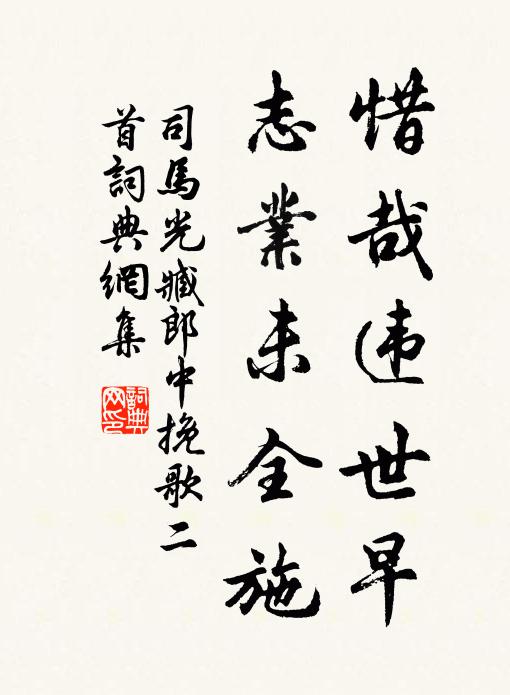 惜哉违世早
志業未全施
司馬光臧郎中挽歌二
首詞典網集
詞典
网印